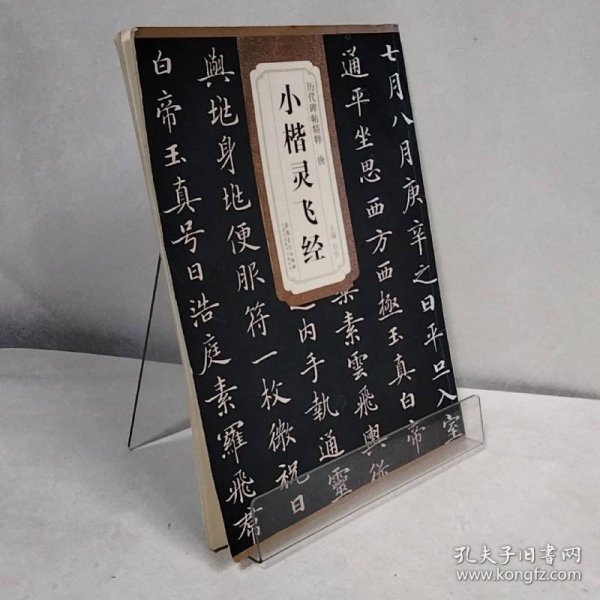 历代碑帖精粹 唐
小楷灵飞经
七月八月庚辛之日平旦入室
通平坐思西方西極玉真白帝
素雲飛輿
之内手執通靈
與地身地便服符一枚微祝曰
白帝玉真号曰浩庭素羅飛裙
孔夫子旧书网
www.kongfz.com